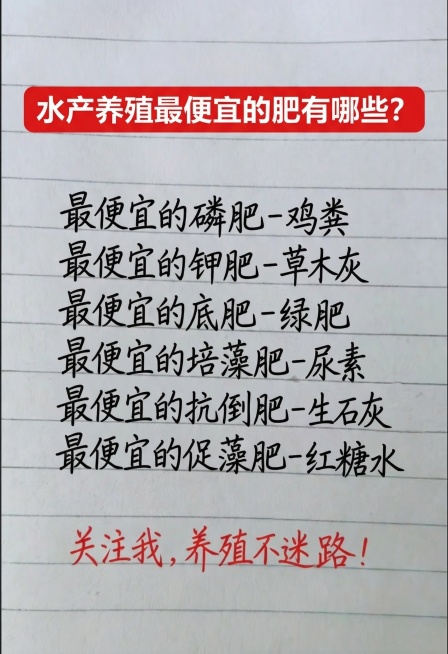 水产养殖最便宜的肥有哪些？
最便宜的磷肥-鸡粪
最便宜的钾肥-草木灰
最便宜的底肥-绿肥
最便宜的培藻肥-尿素
最便宜的抗倒肥-生石灰
最便宜的促藻肥-红糖水
关注我,养殖不迷路！